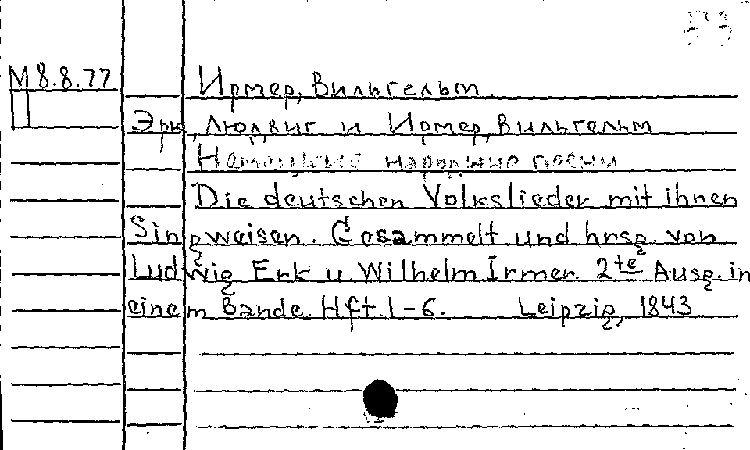 М 8.8.77 Ирмер, Вильгельм.
П
Эрк, Людвиг и Ирмер, Вильгельм
Немецкие народные песни
Die deutschen Volkslieder mit ihnen
Singweisen. Gesammelt und hrsg. von
Ludwig Erk u. Wilhelm Irmer. 2te Ausg. in
einem Bande. Hft. 1-6. Leipzig, 1843